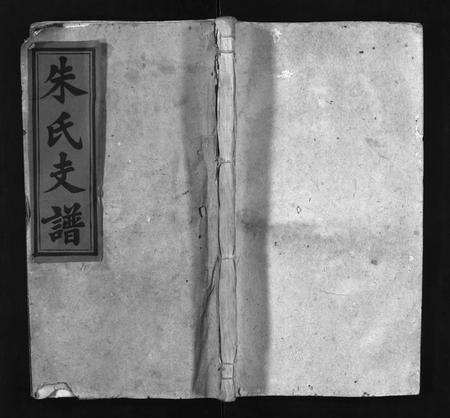 朱氏支譜